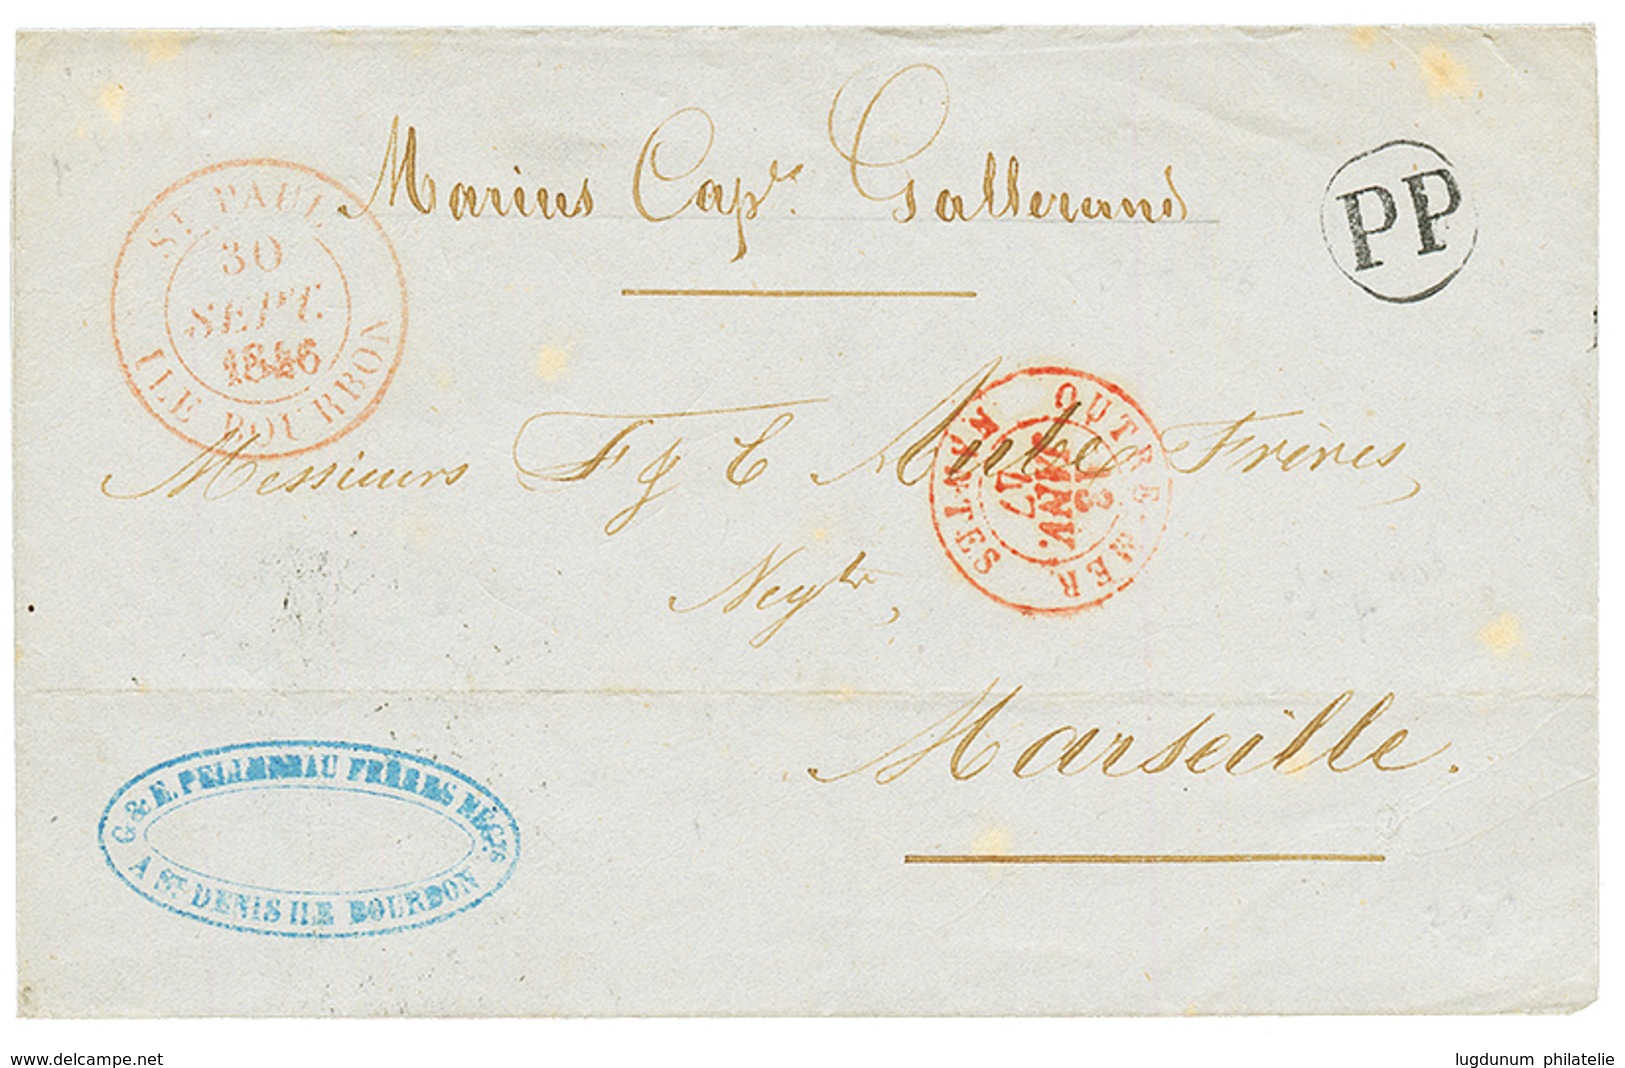 Marius Capne Gallerand
PP
ST. PAUL
30
SEPT.
1846
ILE BOURBON
OUTRE-MER
3
JANV.
47
SETTES
Messieurs F & C Frères,
Negts,
Marseille.
G & E. FRÈRES NÉGts.
A ST. DENIS ILE BOURBON
www.delcampe.net
lugdunum philatelie